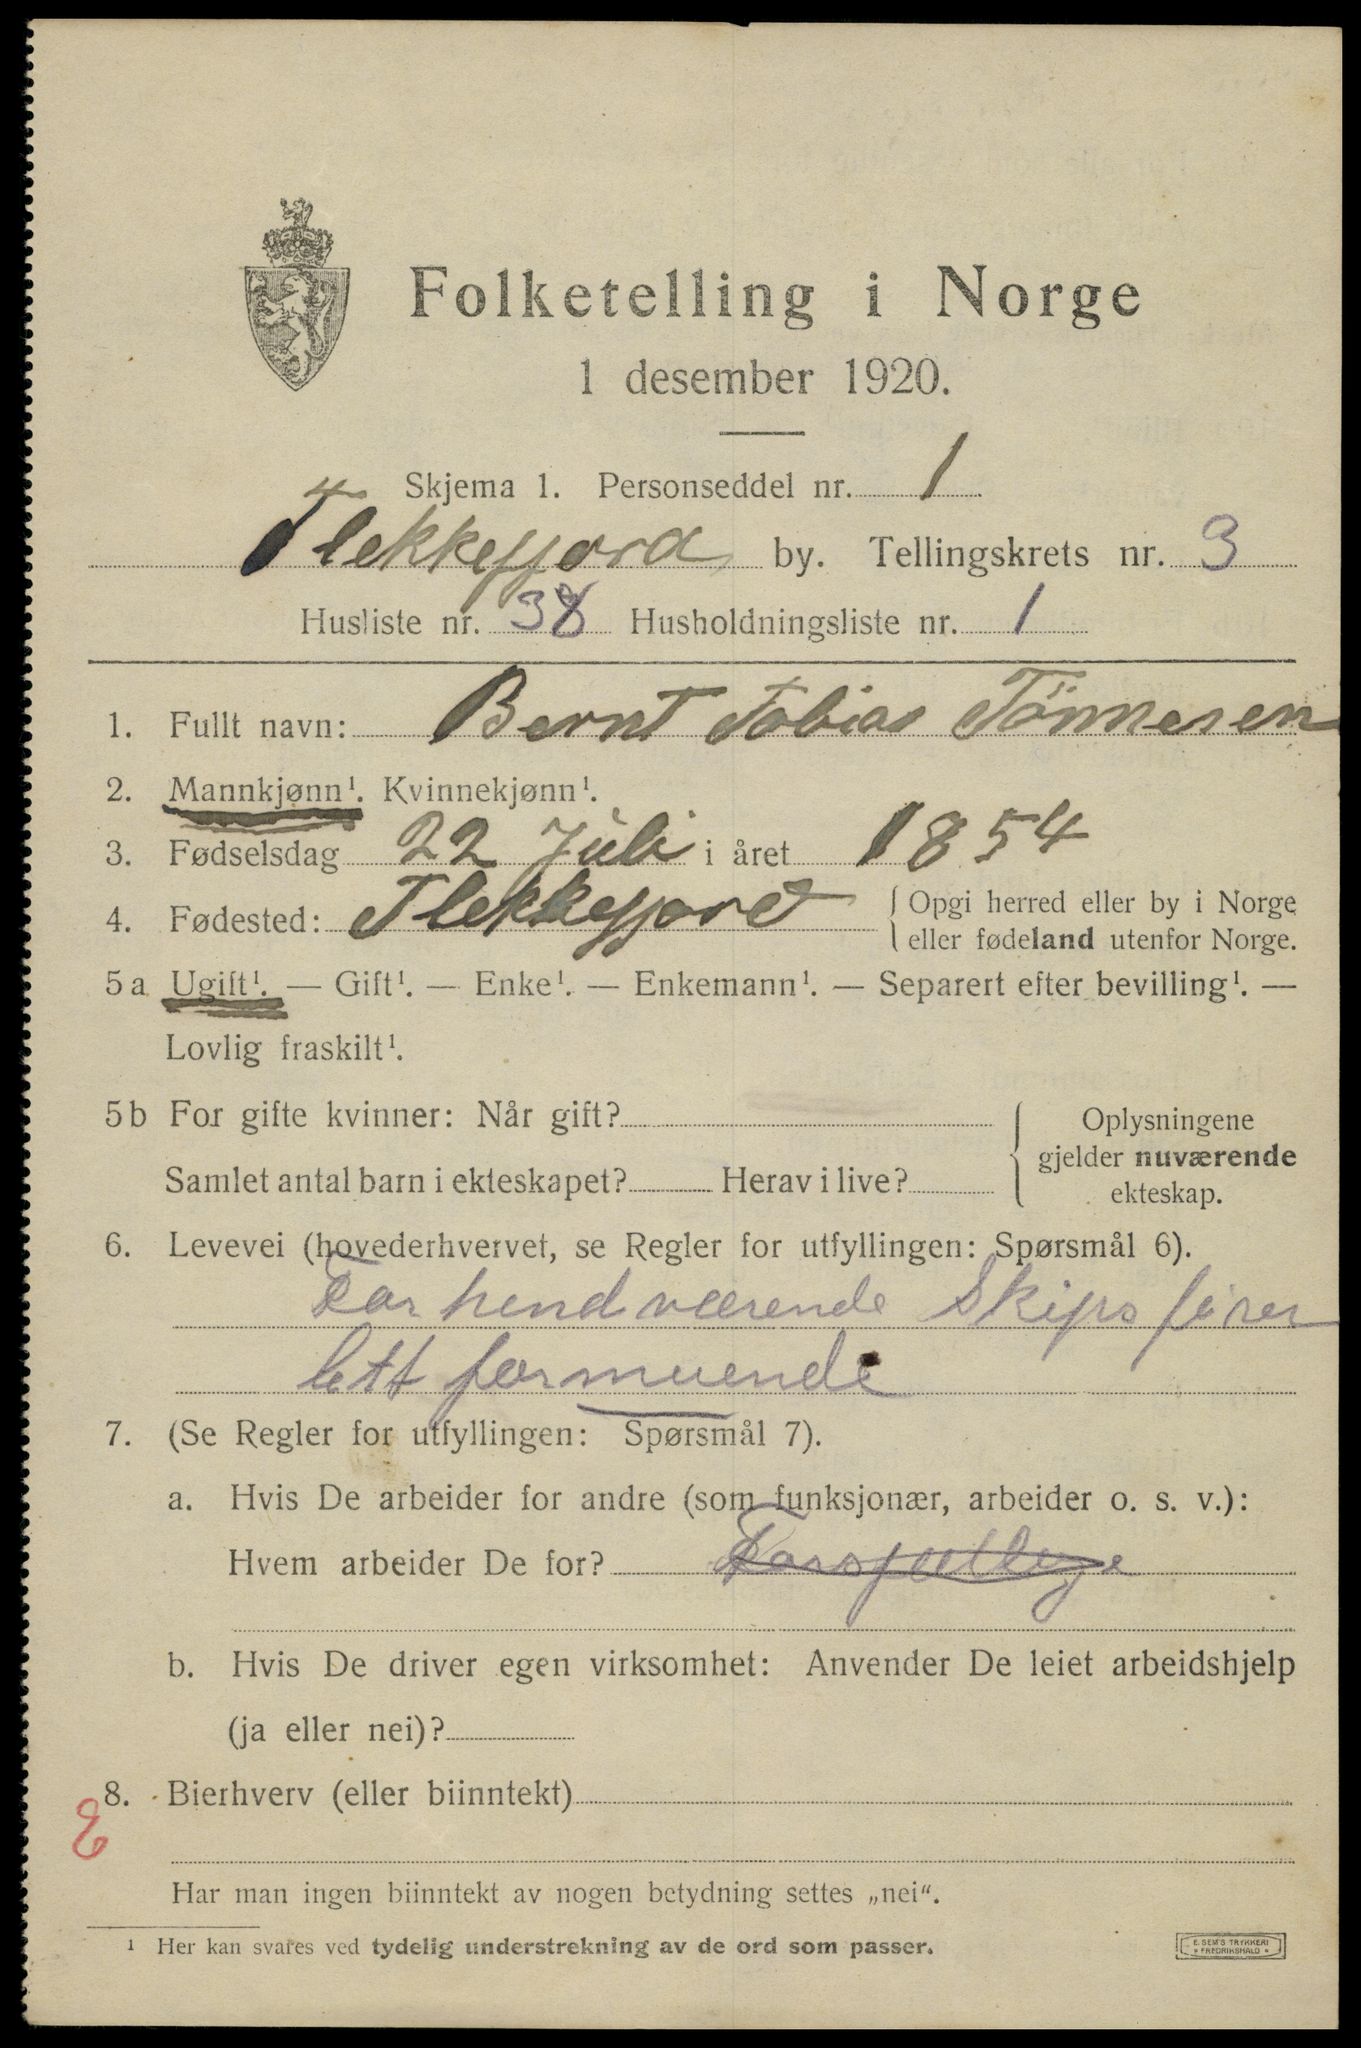 Folketelling i Norge
1 desember 1920.
Skjema 1. Personseddel nr. 1
Flekkefjord by. Tellingskrets nr. 3
Husliste nr. 38 Husholdningsliste nr. 1
1. Fullt navn: Bernt Tobias Tönnesen
2. Mannkjønn¹. Kvinnekjønn¹.
3. Fødselsdag 22 Juli i året 1854
4. Fødested: Flekkefjord { Opgi herred eller by i Norge
eller fødeland utenfor Norge.
5a Ugift¹. — Gift¹. — Enke¹. — Enkemann¹. — Separert efter bevilling¹. —
Lovlig fraskilt¹.
5b For gifte kvinner: Når gift? { Oplysningene
gjelder nuværende
Samlet antal barn i ekteskapet? Herav i live? ekteskap.
6. Levevei (hovederhvervet, se Regler for utfyllingen: Spørsmål 6).
Forhendværende Skipsförer
litt formuende
7. (Se Regler for utfyllingen: Spørsmål 7).
a. Hvis De arbeider for andre (som funksjonær, arbeider o. s. v.):
Hvem arbeider De for?
b. Hvis De driver egen virksomhet: Anvender De leiet arbeidshjelp
(ja eller nei)?
8. Bierhverv (eller biinntekt)
Har man ingen biinntekt av nogen betydning settes „nei“.
¹ Her kan svares ved tydelig understrekning av de ord som passer.
E. SEM'S TRYKKERI
* FREDRIKSHALD *